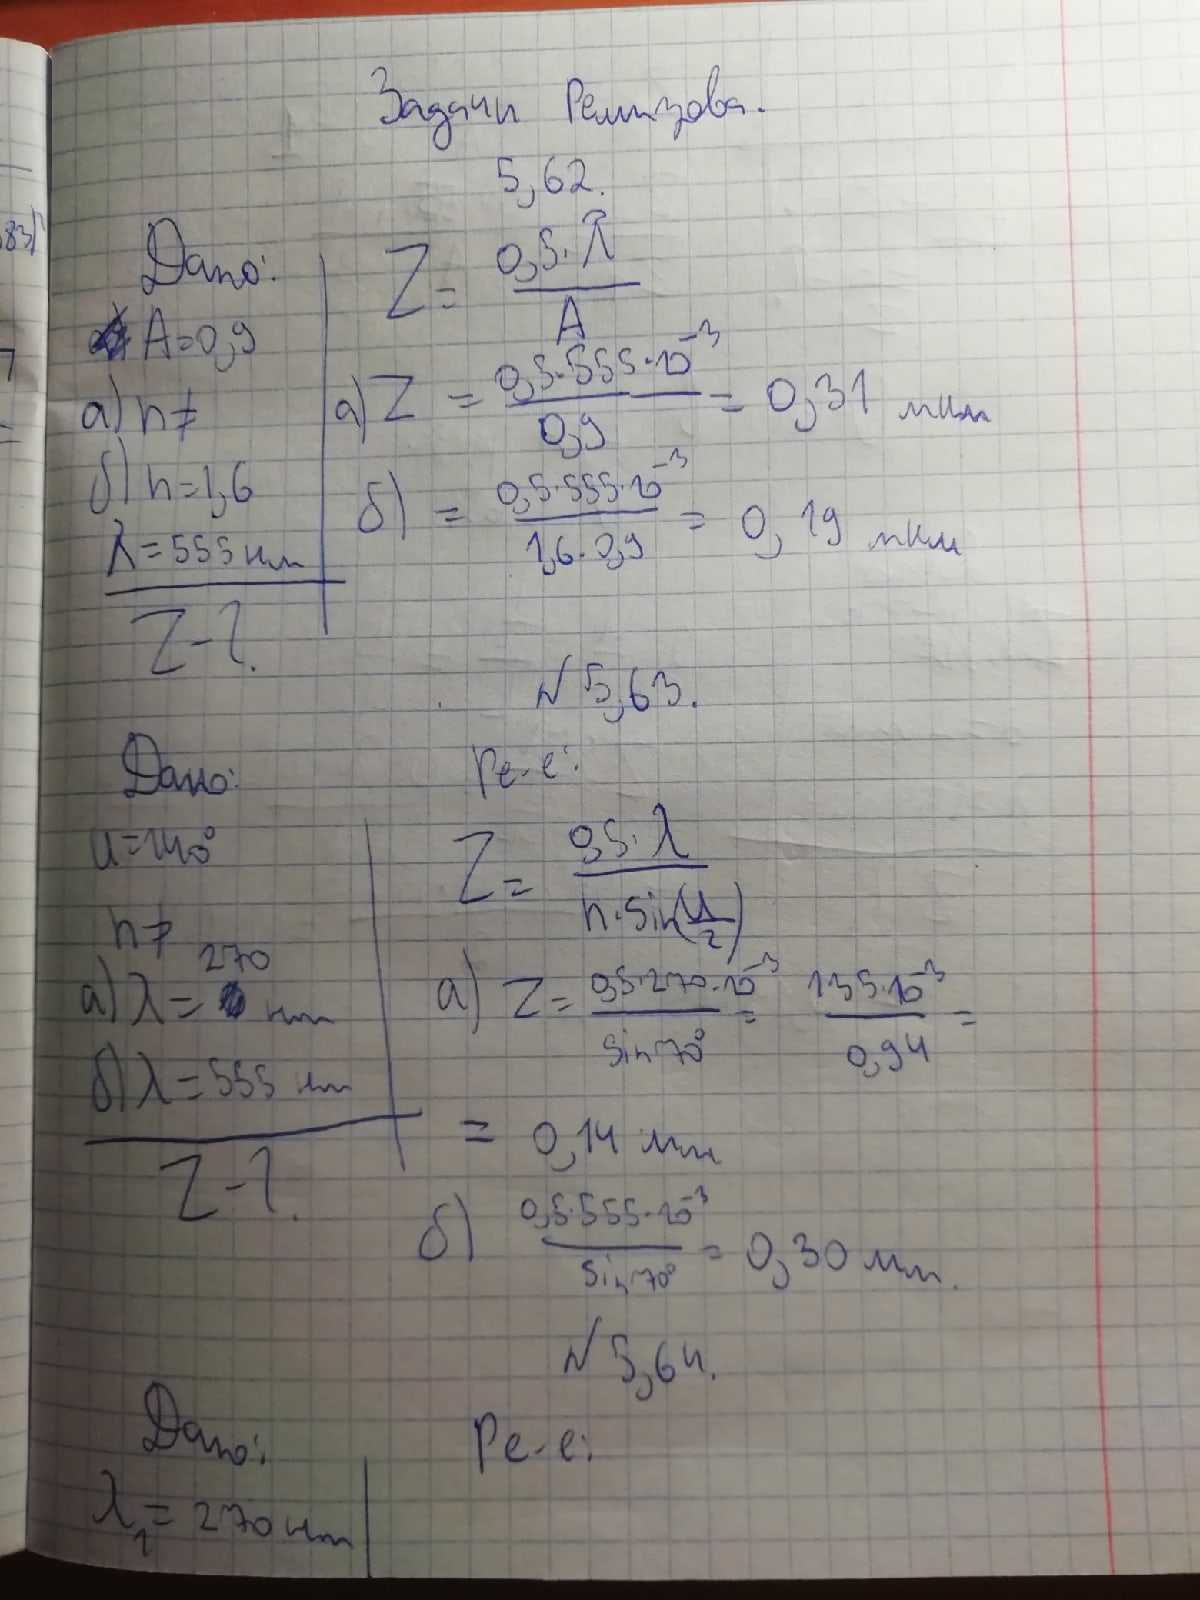 Задачи Ремизова.
5,62.
Дано:
A=0,9
а) n=1
б) n=1,6
λ=555 нм
Z-?
Z = 0,5·λ / A
а) Z = 0,5·555·10⁻³ / 0,9 = 0,31 мкм
б) = 0,5·555·10⁻³ / 1,6·0,9 = 0,19 мкм
№5,63.
Дано:
u=140°
n=1
а) λ= 270 нм
б) λ=555 нм
Z-?
Ре-е:
Z = 0,5·λ / n·sin(u/2)
а) Z = 0,5·270·10⁻³ / sin70° = 135·10⁻³ / 0,94 =
= 0,14 мм
б) 0,5·555·10⁻³ / sin70° = 0,30 мм.
№5,64.
Дано:
λ₁=270 нм
Ре-е: